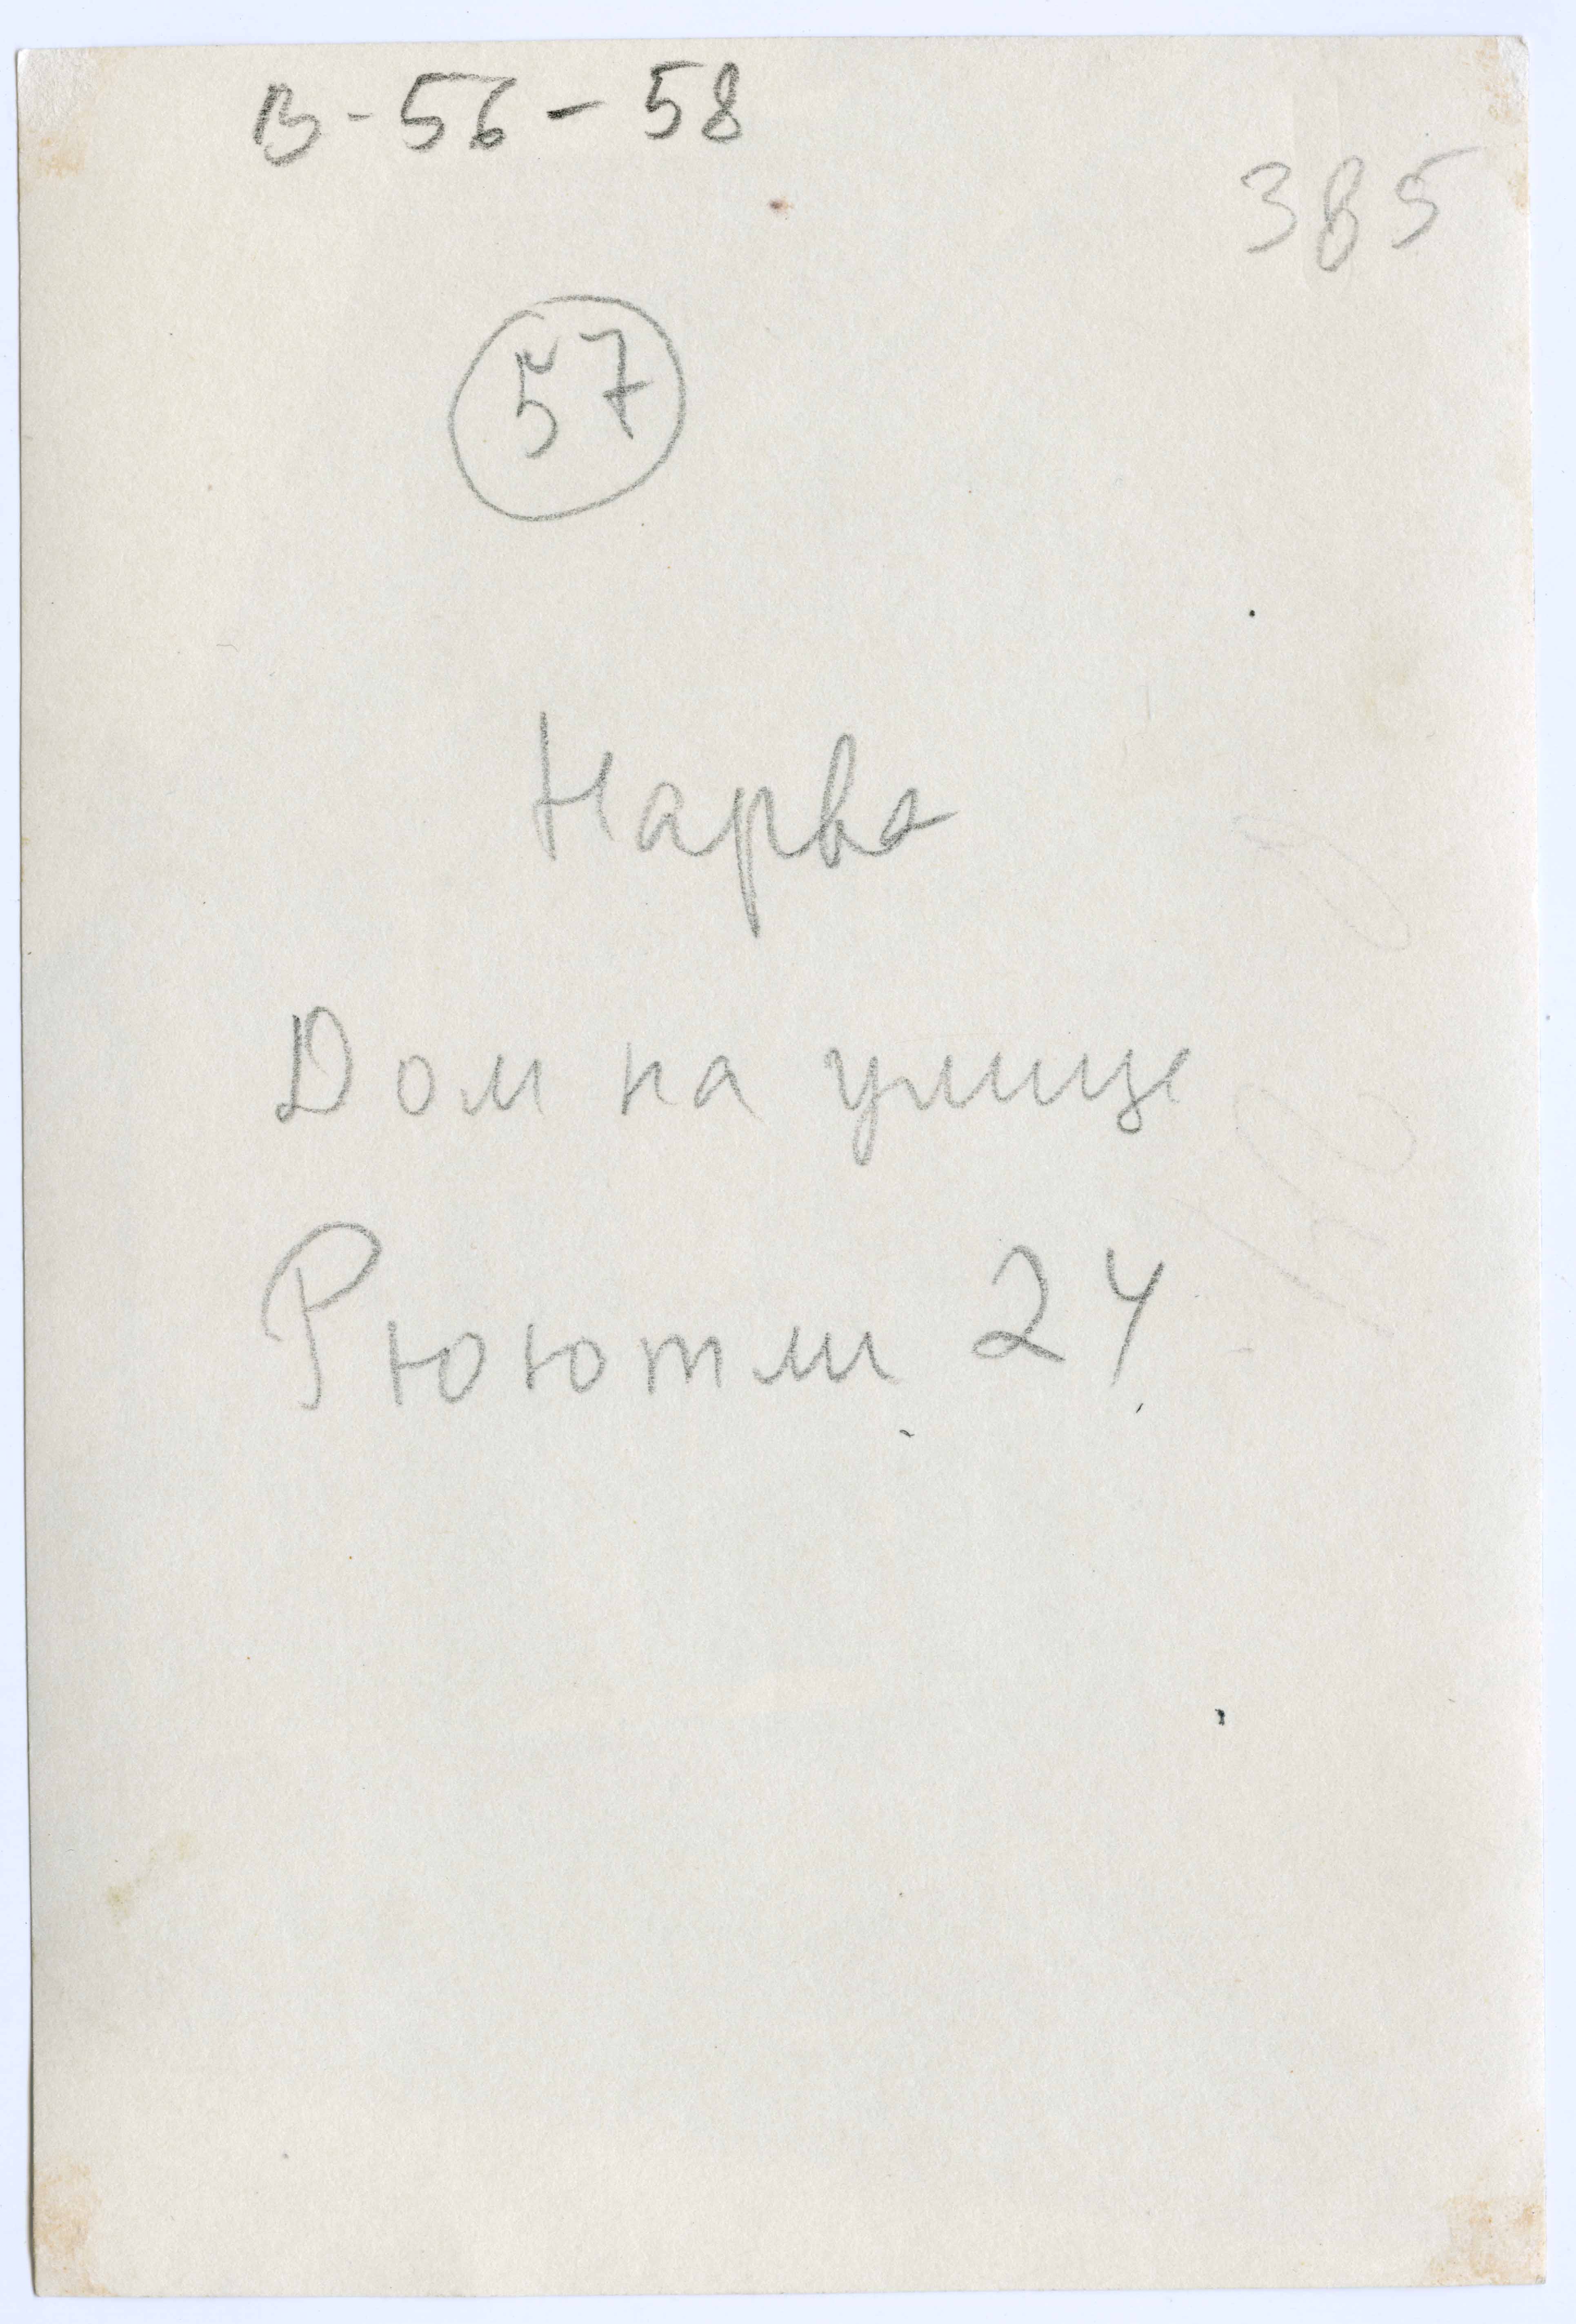 В-56-58
385
57
Нарва
Дом на улице
Рюютли 24